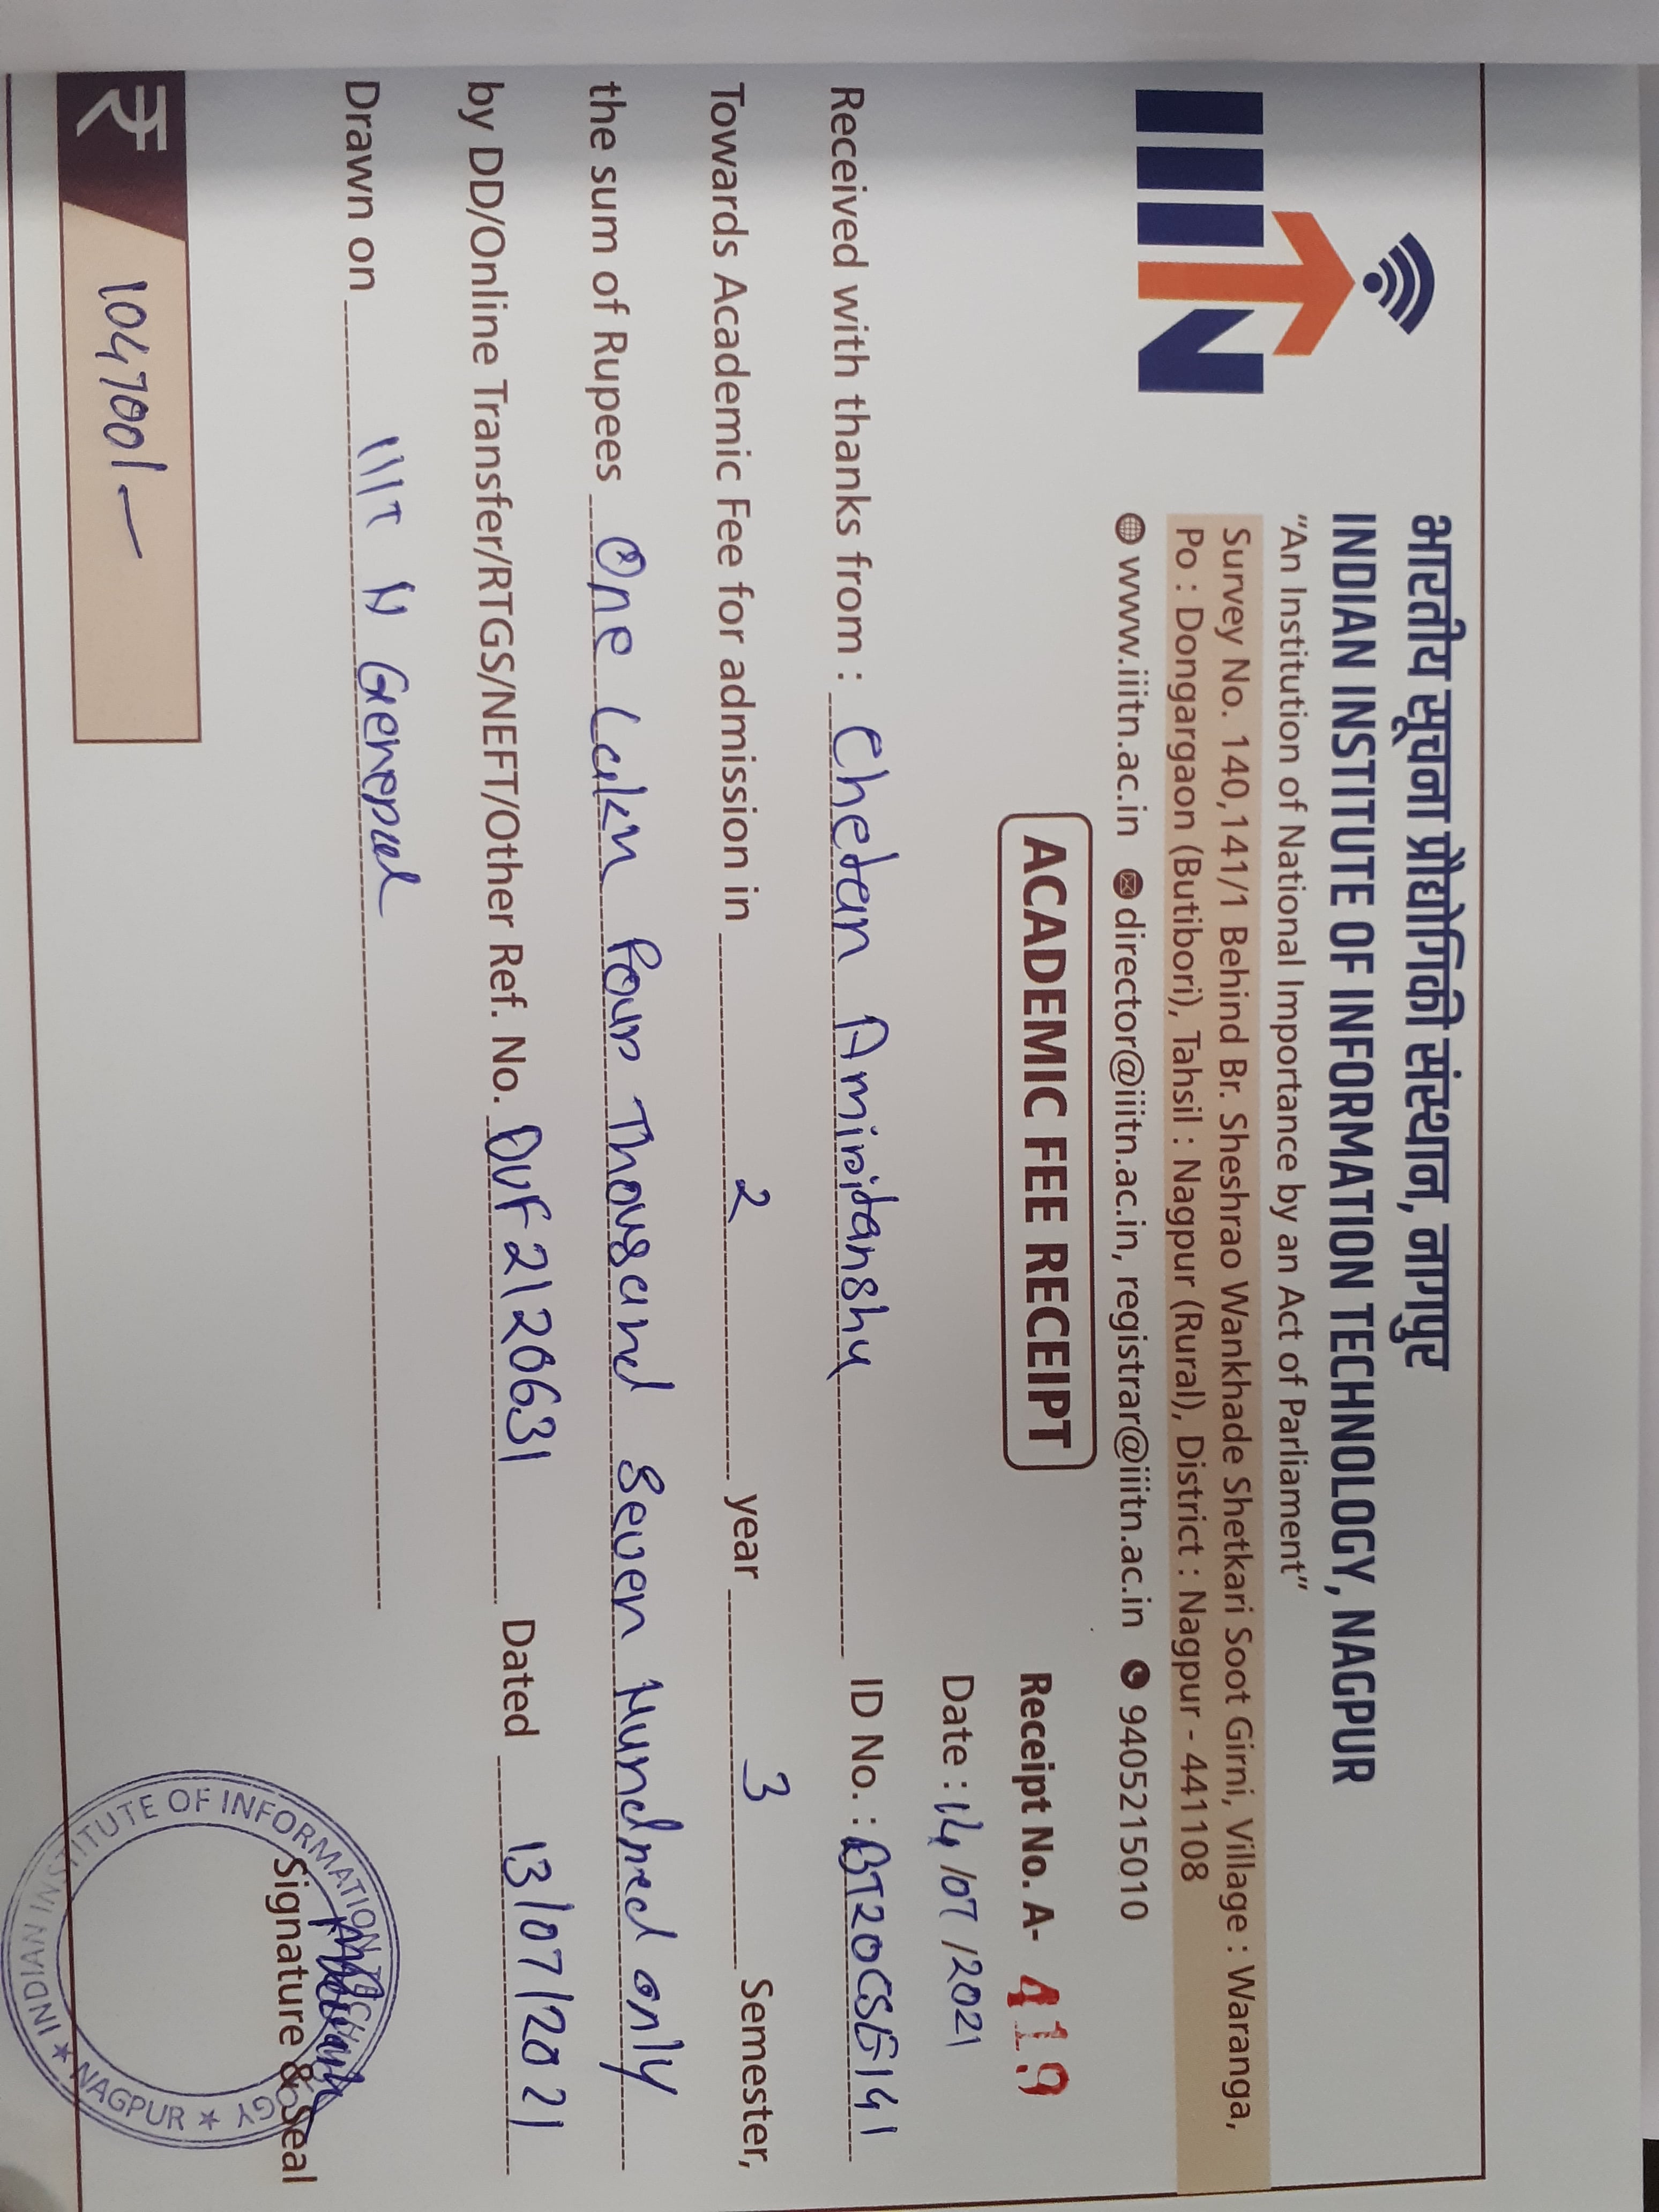 IIITN
भारतीय सूचना प्रौद्योगिकी संस्थान, नागपुर
INDIAN INSTITUTE OF INFORMATION TECHNOLOGY, NAGPUR
"An Institution of National Importance by an Act of Parliament"
Survey No. 140,141/1 Behind Br. Sheshrao Wankhade Shetkari Soot Girni, Village : Waranga,
Po : Dongargaon (Butibori), Tahsil : Nagpur (Rural), District : Nagpur - 441108
www.iiitn.ac.in director@iiitn.ac.in, registrar@iiitn.ac.in 9405215010
ACADEMIC FEE RECEIPT
Receipt No. A- 419
Date : 14/07/2021
Received with thanks from : Chetan Amiritanshu ID No. : BT20CSE141
Towards Academic Fee for admission in 2 year 3 Semester,
the sum of Rupees One Lakh Four Thousand Seven Hundred only
by DD/Online Transfer/RTGS/NEFT/Other Ref. No. DUF2120631 Dated 13/07/2021
Drawn on IIIT N General
₹ 104700/-
Signature & Seal
INDIAN INSTITUTE OF INFORMATION TECHNOLOGY ★ NAGPUR ★